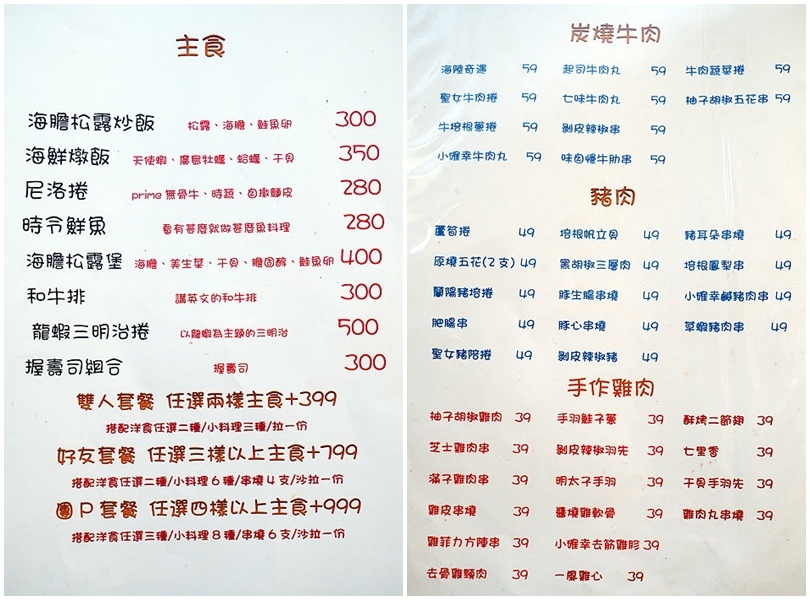 主食
海膽松露炒飯 松露、海膽、鮭魚卵 300
海鮮燉飯 天使蝦、廣島牡蠣、蛤蠣、干貝 350
尼洛捲 prime無骨牛、時蔬、自撖麵皮 280
時令鮮魚 看有甚麼就做甚麼魚料理 280
海膽松露堡 海膽、美生菜、干貝、膽固醇、鮭魚卵 400
和牛排 講英文的和牛排 300
龍蝦三明治捲 以龍蝦為主題的三明治 500
握壽司組合 握壽司 300
雙人套餐 任選兩樣主食+399
搭配洋食任選二種/小料理三種/拉一份
好友套餐 任選三樣以上主食+799
搭配洋食任選二種/小料理6種/串燒4支/沙拉一份
團P套餐 任選四樣以上主食+999
搭配洋食任選三種/小料理8種/串燒6支/沙拉一份
炭燒牛肉
海陸奇遇 59 起司牛肉丸 59 牛肉蔬菜捲 59
聖女牛肉捲 59 七味牛肉丸 59 柚子胡椒五花串 59
牛培根蔥捲 59 剝皮辣椒串 59
小確幸牛肉丸 59 味自慢牛肋串 59
豬肉
蘆筍捲 49 培根帆立貝 49 豬耳朵串燒 49
原燒五花(2支) 49 黑胡椒三層肉 49 培根鳳梨串 49
蘭陽豬培捲 49 豚生腸串燒 49 小確幸鹹豬肉串 49
肥腸串 49 豚心串燒 49 草蝦豬肉串 49
聖女豬陪捲 49 剝皮辣椒豬 49
手作雞肉
柚子胡椒雞肉 39 手羽鮭子蔥 39 酥烤二節翅 39
芝士雞肉串 39 剝皮辣椒羽先 39 七里香 39
滿子雞肉串 39 明太子手羽 39 干貝手羽先 39
雞皮串燒 39 醬燒雞軟骨 39 雞肉丸串燒 39
雞菲力方陣串 39 小確幸去筋雞胗 39
去骨雞頸肉 39 一厚雞心 39